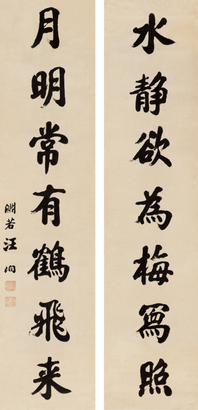 水静欲為梅寫照
月明常有鶴飛来
淵若汪洵